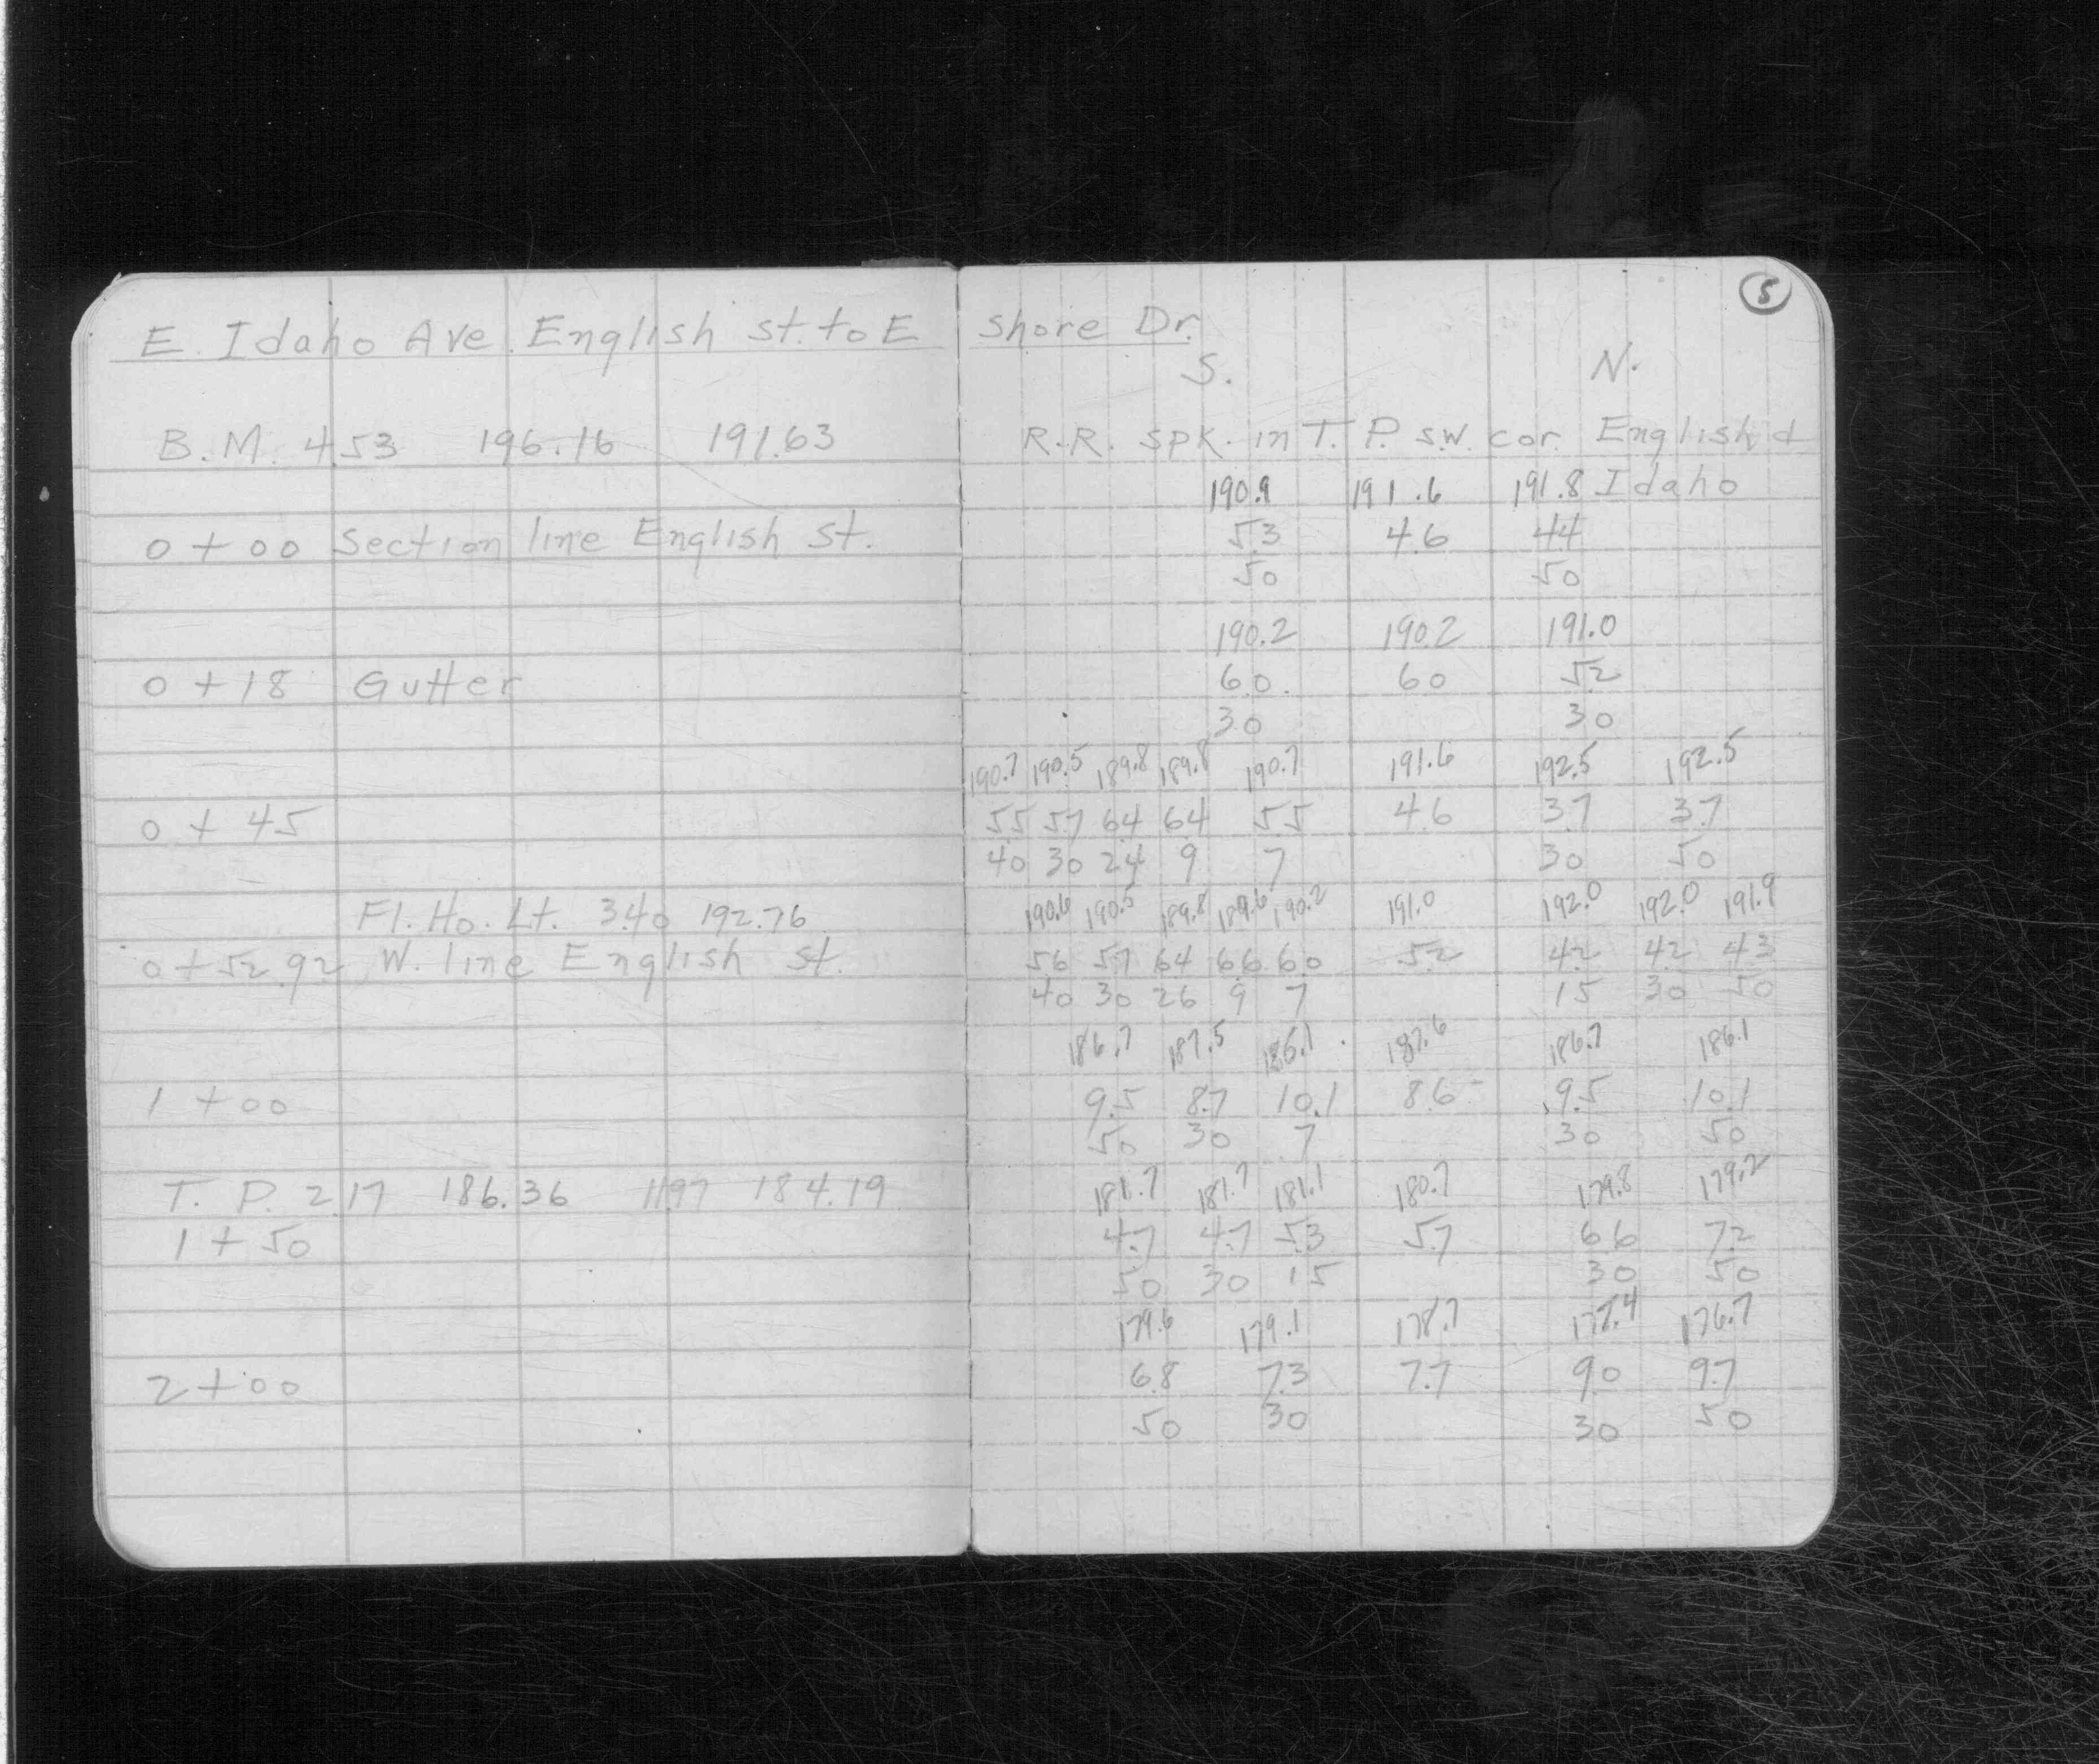 5
E. Idaho Ave. English st. to E Shore Dr.
S. N.
B.M. 4.53 196.16 191.63 R.R. Spk. in T.P. S.W. cor. English &
190.9 191.6 191.8 Idaho
0+00 Section line English st. 5.3 4.6 4.4
50 50
190.2 190.2 191.0
0+18 Gutter 6.0 6.0 5.2
30 30
190.7 190.5 189.8 189.8 190.7 191.6 192.5 192.5
0+45 5.5 5.7 6.4 6.4 5.5 4.6 3.7 3.7
40 30 24 9 7 30 50
Fl. Ho. Lt. 3.40 192.76 190.6 190.5 189.8 189.6 190.2 191.0 192.0 192.0 191.9
0+52.92 W. line English st. 5.6 5.7 6.4 6.6 6.0 5.2 4.2 4.2 4.3
40 30 26 9 7 15 30 50
186.7 187.5 186.1 187.6 186.7 186.1
1+00 9.5 8.7 10.1 8.6 9.5 10.1
50 30 7 30 50
T.P. 2.17 186.36 11.97 184.19 181.7 181.7 181.1 180.7 179.8 179.2
1+50 4.7 4.7 5.3 5.7 6.6 7.2
50 30 15 30 50
179.6 179.1 178.7 177.4 176.7
2+00 6.8 7.3 7.7 9.0 9.7
50 30 30 50